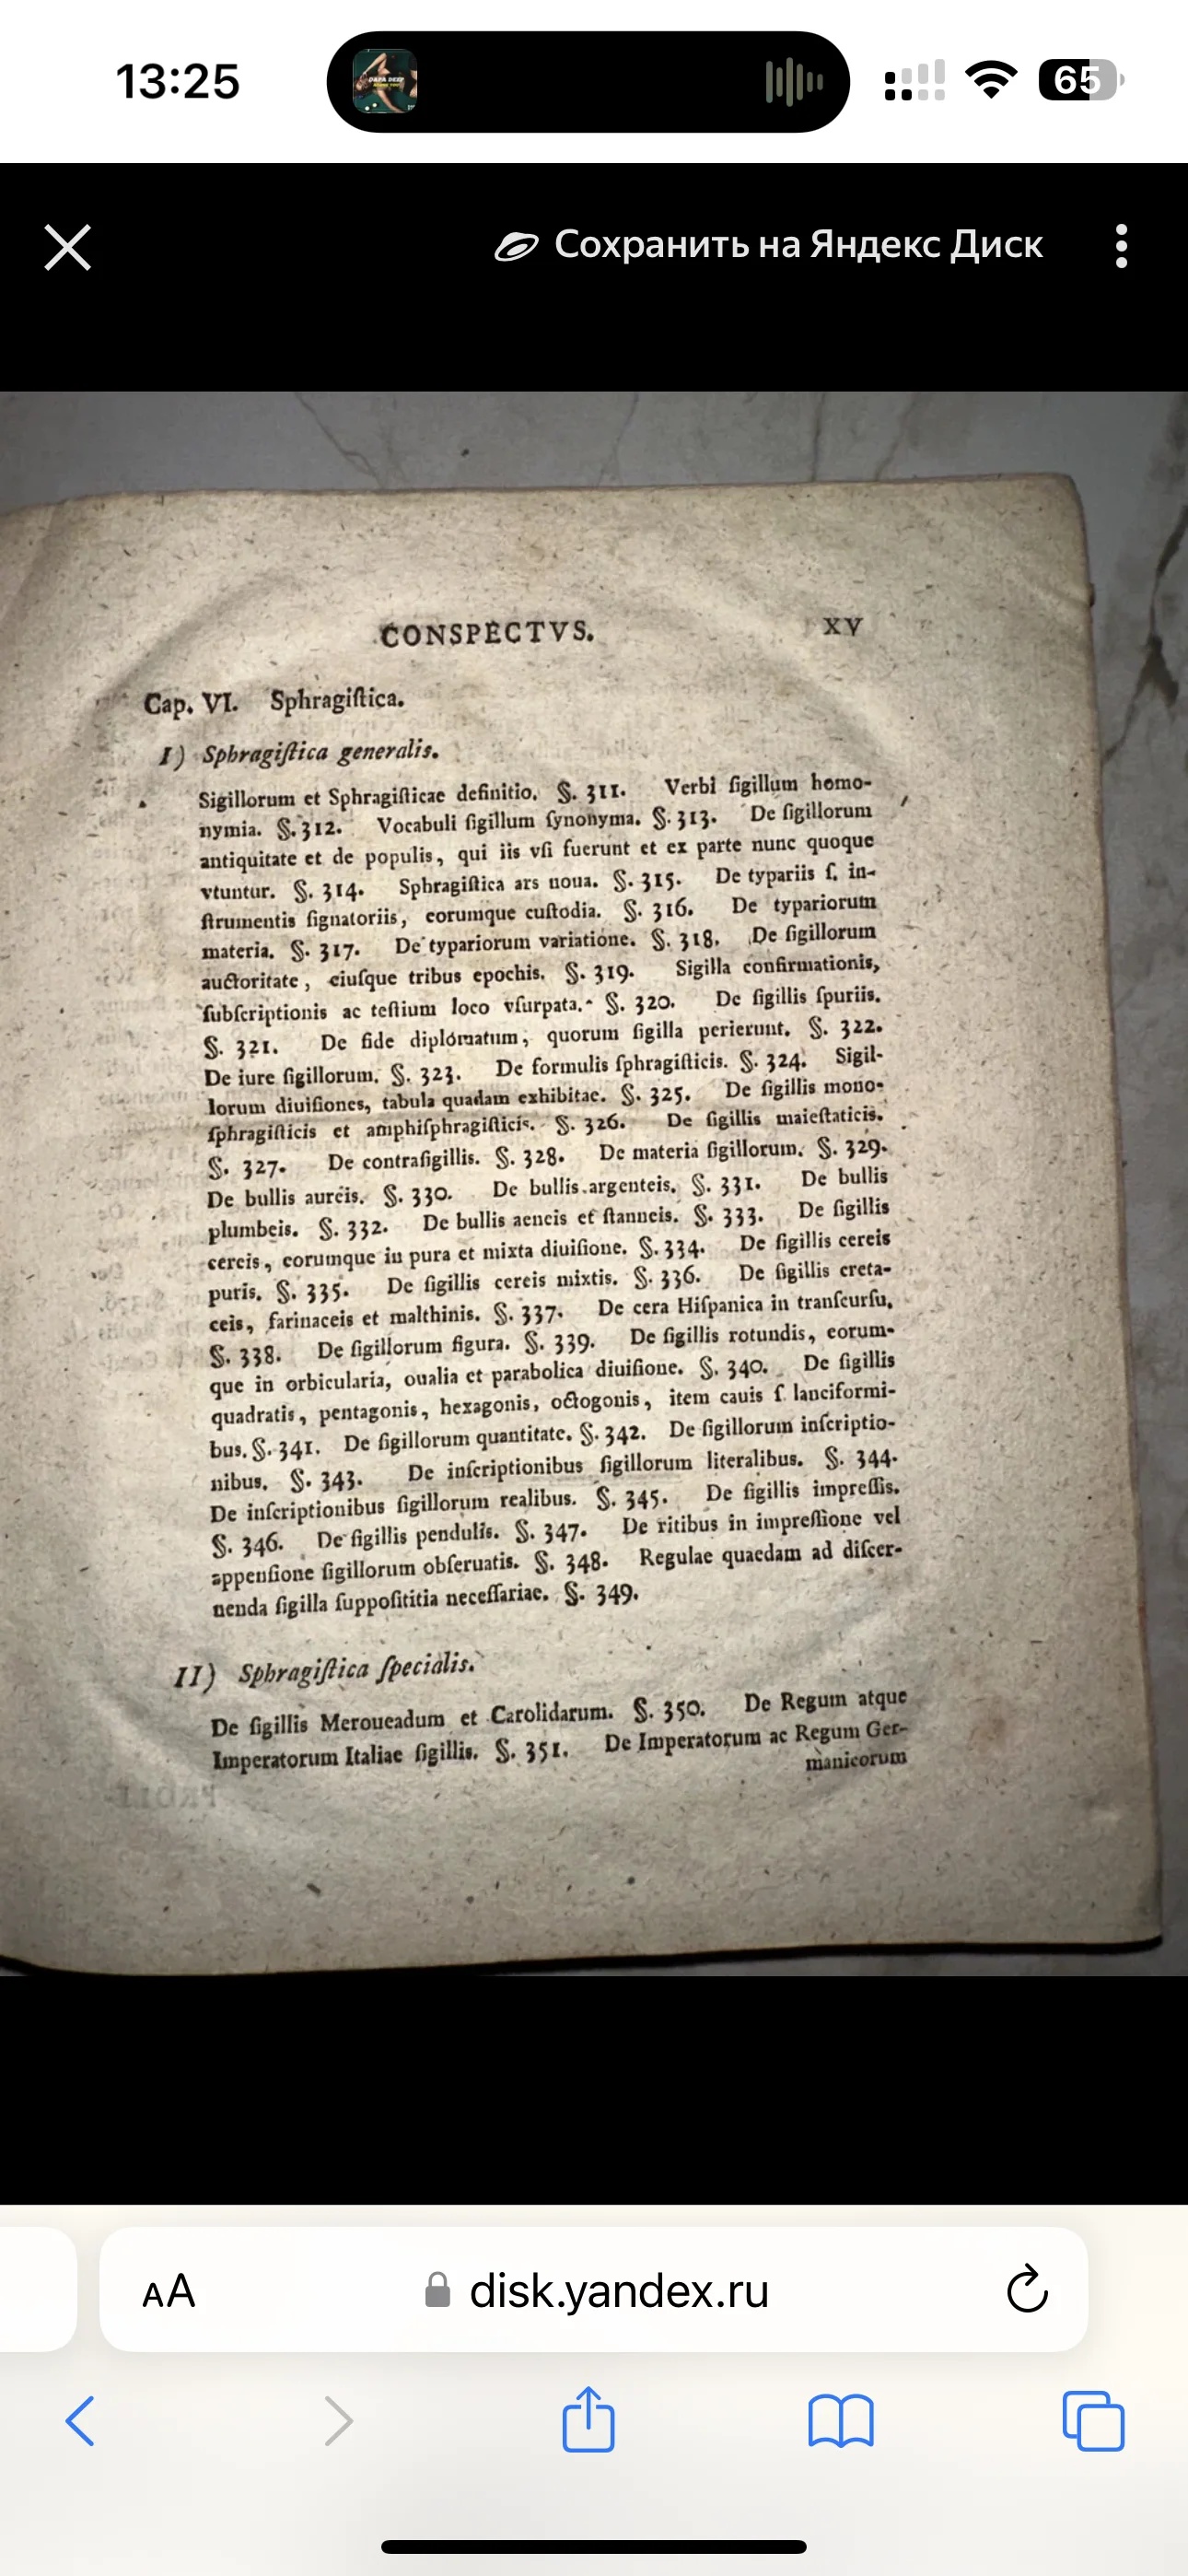 13:25
65
Сохранить на Яндекс Диск
CONSPECTVS. XV
Cap. VI. Sphragiſtica.
I) Sphragiſtica generalis.
Sigillorum et Sphragiſticae definitio. §. 311. Verbi ſigillum homo-
nymia. §. 312. Vocabuli ſigillum ſynonyma. §. 313. De ſigillorum
antiquitate et de populis, qui iis vſi fuerunt et ex parte nunc quoque
vtuntur. §. 314. Sphragiſtica ars noua. §. 315. De typariis ſ. in-
ſtrumentis ſignatoriis, eorumque cuſtodia. §. 316. De typariorum
materia. §. 317. De typariorum variatione. §. 318. De ſigillorum
auctoritate, eiuſque tribus epochis. §. 319. Sigilla confirmationis,
ſubſcriptionis ac teſtium loco vſurpata. §. 320. De ſigillis ſpuriis.
§. 321. De fide diplomatum, quorum ſigilla perierunt. §. 322.
De iure ſigillorum. §. 323. De formulis ſphragiſticis. §. 324. Sigil-
lorum diuiſiones, tabula quadam exhibitae. §. 325. De ſigillis mono-
ſphragiſticis et amphiſphragiſticis. §. 326. De ſigillis maieſtaticis.
§. 327. De contraſigillis. §. 328. De materia ſigillorum. §. 329.
De bullis aureis. §. 330. De bullis argenteis. §. 331. De bullis
plumbeis. §. 332. De bullis aeneis et ſtanneis. §. 333. De ſigillis
cereis, eorumque in pura et mixta diuiſione. §. 334. De ſigillis cereis
puris. §. 335. De ſigillis cereis mixtis. §. 336. De ſigillis creta-
ceis, farinaceis et malthinis. §. 337. De cera Hiſpanica in tranſcurſu.
§. 338. De ſigillorum figura. §. 339. De ſigillis rotundis, eorum-
que in orbicularia, oualia et parabolica diuiſione. §. 340. De ſigillis
quadratis, pentagonis, hexagonis, octogonis, item cauis ſ. lanciformi-
bus. §. 341. De ſigillorum quantitate. §. 342. De ſigillorum inſcriptio-
nibus. §. 343. De inſcriptionibus ſigillorum literalibus. §. 344.
De inſcriptionibus ſigillorum realibus. §. 345. De ſigillis impreſſis.
§. 346. De ſigillis pendulis. §. 347. De ritibus in impreſſione vel
appenſione ſigillorum obſeruatis. §. 348. Regulae quaedam ad diſcer-
nenda ſigilla ſuppoſititia neceſſariae. §. 349.
II) Sphragiſtica ſpecialis.
De ſigillis Meroueadum et Carolidarum. §. 350. De Regum atque
Imperatorum Italiae ſigillis. §. 351. De Imperatorum ac Regum Ger-
manicorum
AA disk.yandex.ru